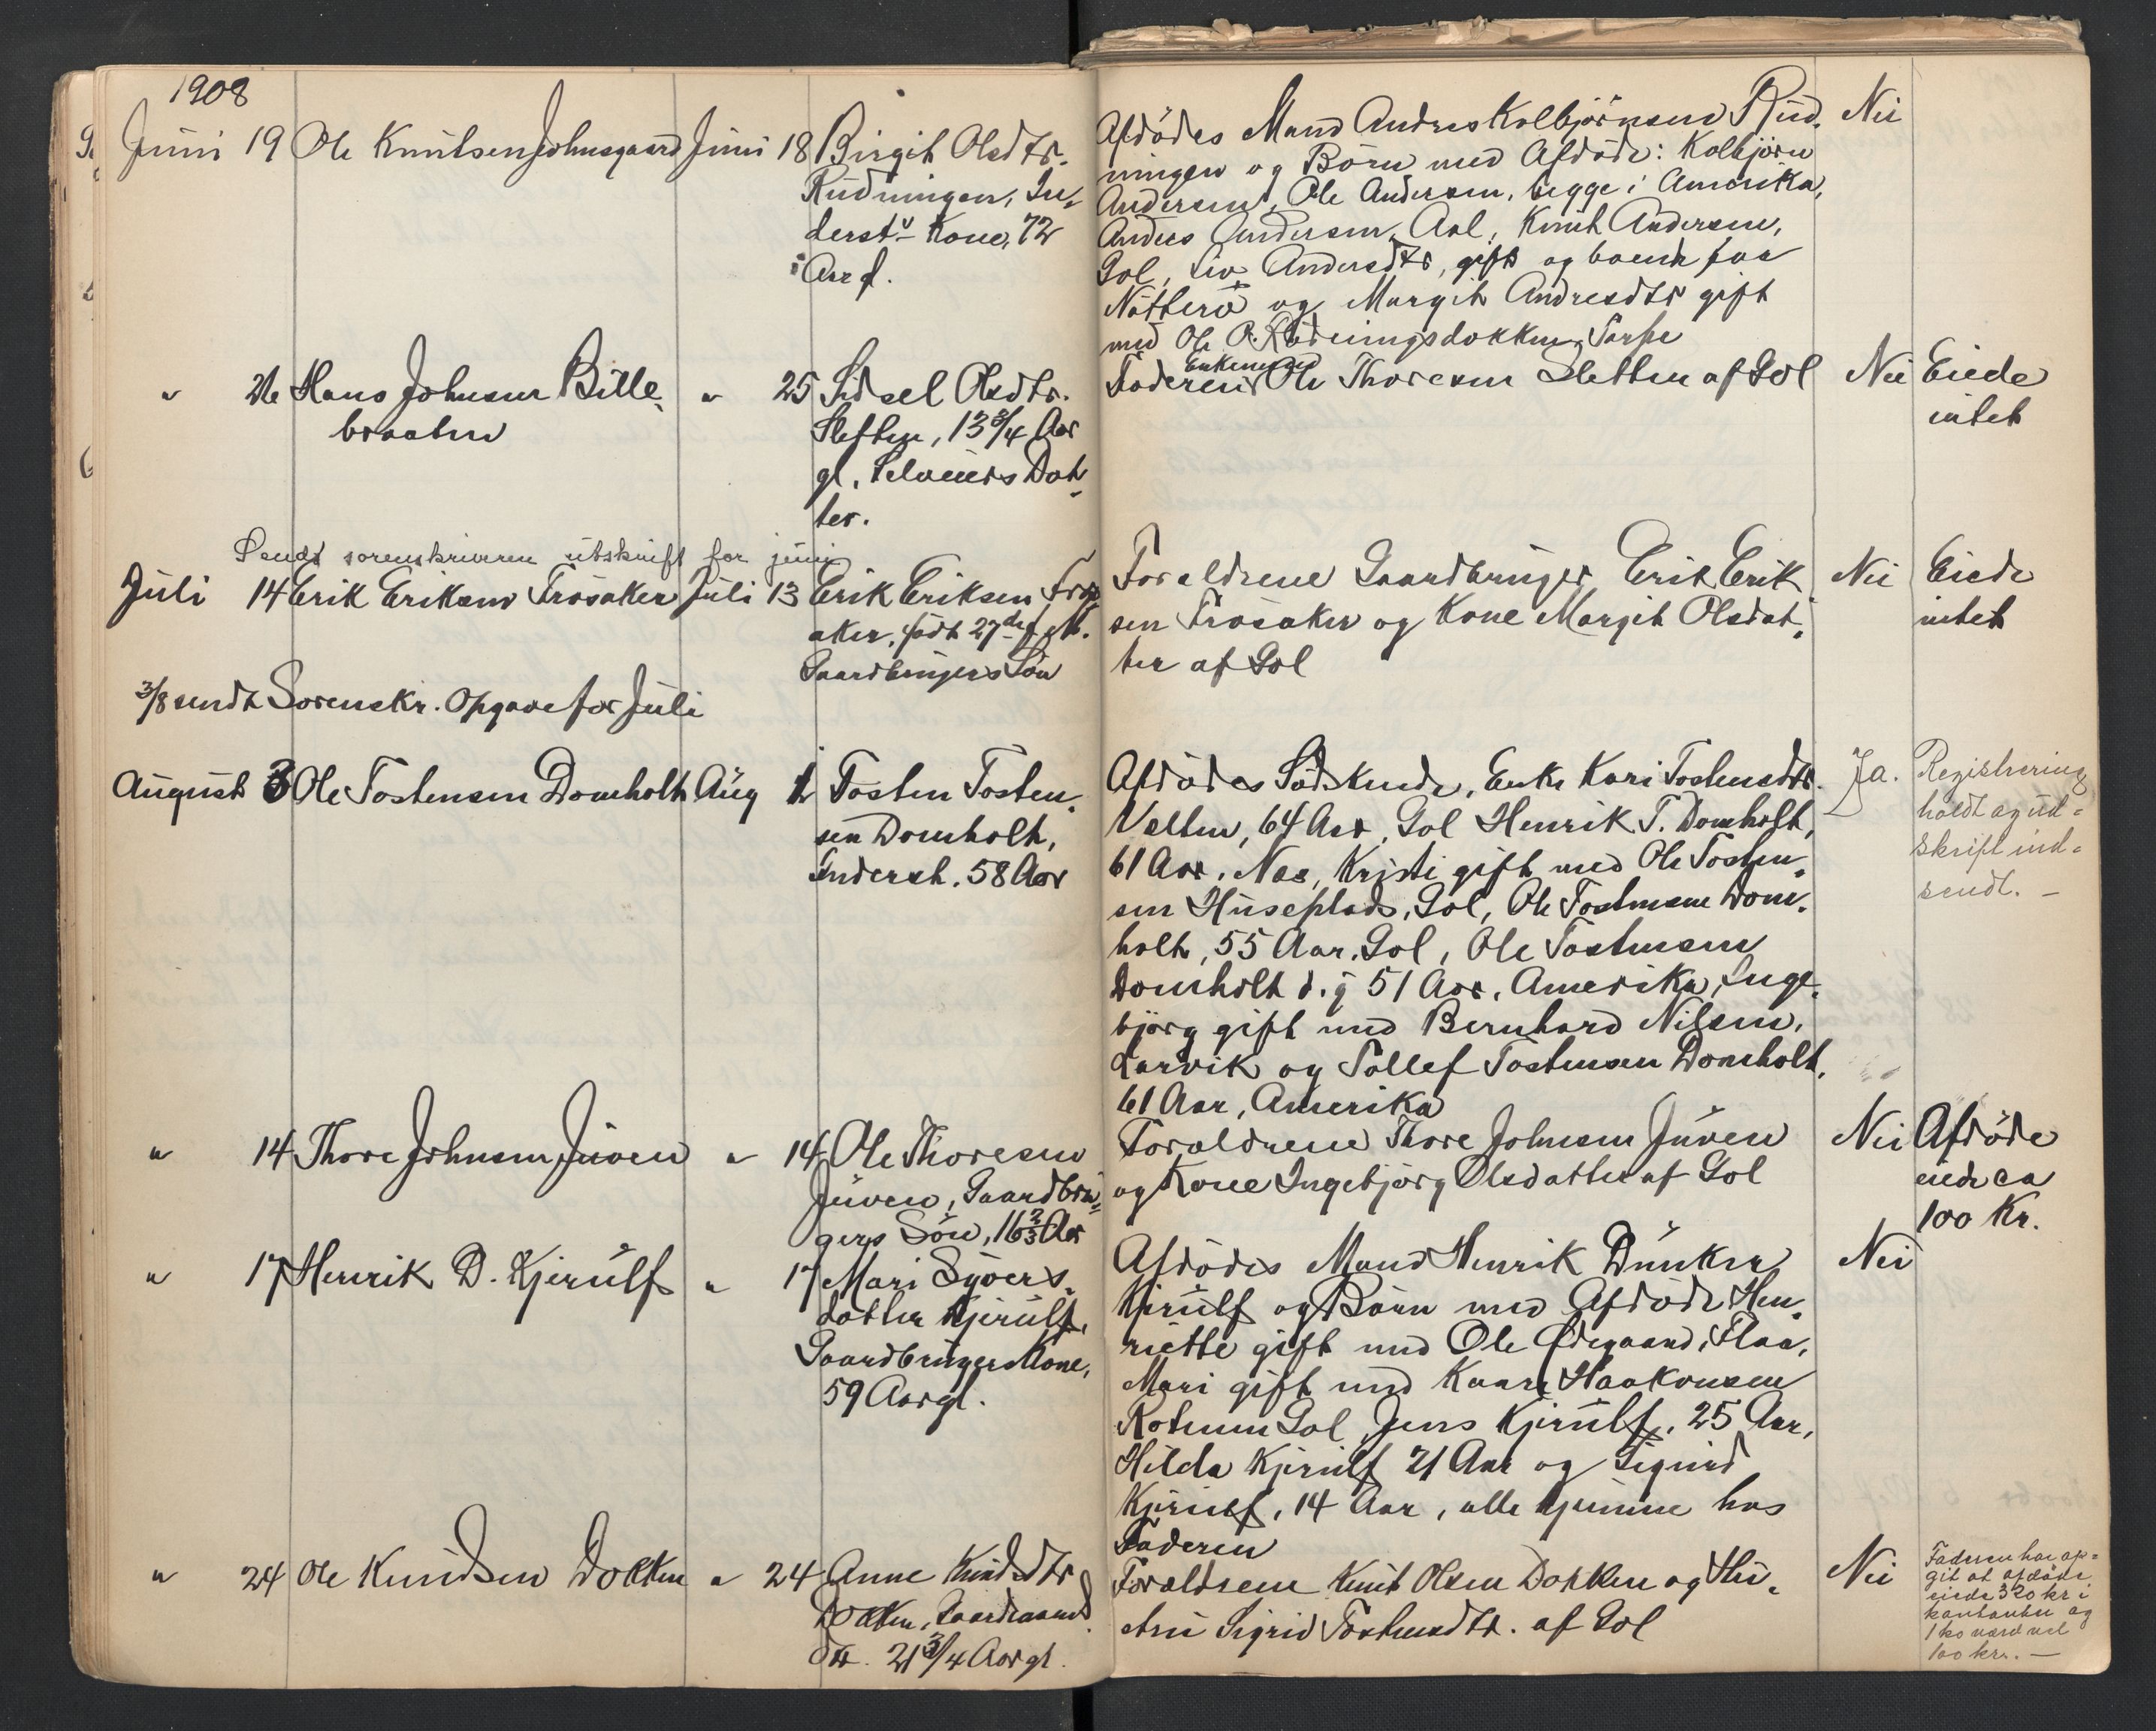 1908
Juni 19 Ole Knutsen Johnsgaard Juni 18 Birgit Olsdtr.
Rudningen, In-
derstv Kone, 72
Aar gl.
Afdödes Mand Andres Kolbjörnsen Rud-
ningen og Börn med Afdöde: Kolbjörn
Andersen, Ole Andersen, begge i Amerika,
Anders Andersen, Aal, Knut Andersen,
Gol, Liv Andersdtr, gift og boende paa
Nötterö og Margit Andresdtr gift
med Ole O. Rudningsdokken, Torpe
Nei
" 26 Hans Johnsen Bille-
braaten
" 25 Sidsel Olsdtr.
Sletten, 13 3/4 Aar
gl. Selveiers Dat-
ter.
Enkemand
Faderen Ole Thoresen Sletten af Gol
Nei Eiede
intet
Sendt sorenskriveren utskrift for juni
Juli 14 Erik Eriksen Frösaker Juli 13 Erik Eriksen Frös-
aker, födt 27de f. M.
Gaardbrugers Sön
Forældrene Gaardbruger Erik Erik-
sen Frösaker og Kone Margit Olsdat-
ter af Gol
Nei Eiede
intet
3/8 sendt Sorenskr. Opgave for Juli
August 3 Ole Tostensen Domholt Aug 1 Tosten Tosten-
sen Domholt,
Inderst. 58 Aar
Afdödes Södskende, Enke Kari Tostensdtr.
64 Aar, Gol Henrik T. Domholt,
61 Aar, Nes, Kristi gift med Ole Tosten-
sen Huseplads, Gol, Ole Tostensen Dom-
holt, 55 Aar, Gol, Ole Tostensen
Domholt d. y 51 Aar, Amerika, Inge-
björg gift med Bernhard Nilsen,
Larvik og Tollef Tostensen Domholt,
61 Aar, Amerika
Ja. Registrering
holdt og ud=
skrift ind=
sendt. –
" 14 Thore Johnsen Juven " 14 Ole Thoresen
Juven, Gaardbru-
gers Sön, 16 2/3 Aar
Forældrene Thore Johnsen Juven
og Kone Ingebjörg Olsdatter af Gol
Nei Afdöde
eiede ca
100 Kr.
" 17 Henrik D. Kjerulf " 17 Mari Syvers-
datter Kjerulf,
Gaardbrugers Kone,
59 Aar gl.
Afdödes Mand Henrik Dunker
Kjerulf og Börn med Afdöde Hen-
riette gift med Ole Ødegaard, Flaa,
Mari gift med Knut Haakonsen
Gol, Jens Kjerulf, 25 Aar,
Hilda Kjerulf 21 Aar og Sigurd
Kjerulf, 14 Aar, alle hjemme hos
Faderen
Nei
" 24 Ole Knudsen Dokken " 24 Anne Knudsdtr
Dokken, Gaardmands
dtr. 21 3/4 Aar gl.
Forældrene Knut Olsen Dokken og Hu-
stru Sigrid Tostensdtr. af Gol
Nei Faderen har op=
git at afdöde
eiede 320 kr i
kontanter og
1 ko værd vel
100 kr. –